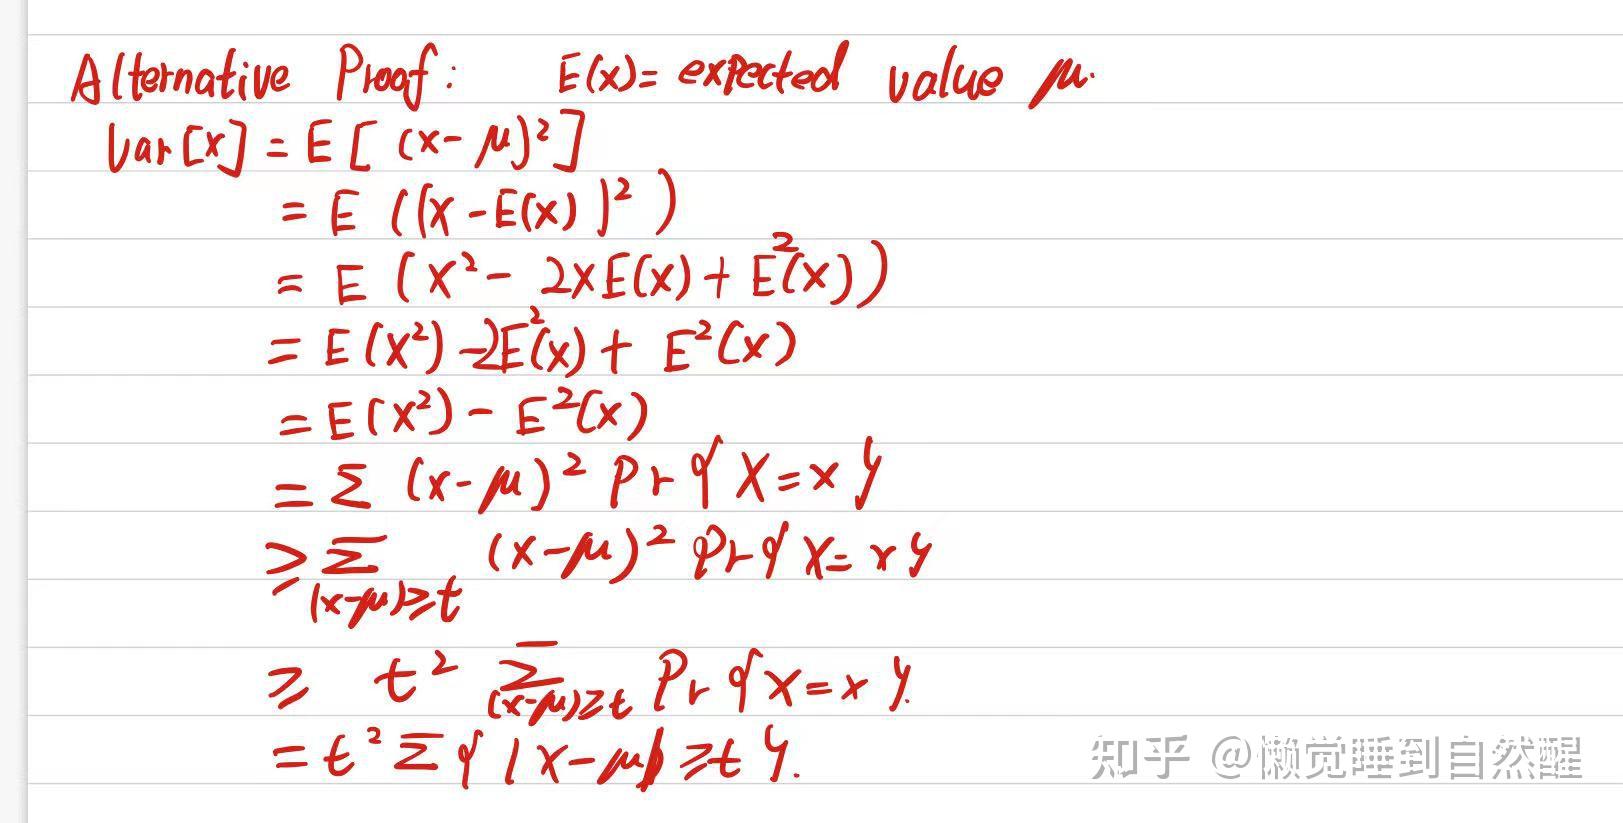 Alternative Proof: E(x) = expected value μ.
Var[x] = E[(x-μ)²]
= E((x-E(x))²)
= E(x²-2xE(x)+E²(x))
= E(x²)-2E²(x)+E²(x)
= E(x²)-E²(x)
= Σ (x-μ)² Pr{X=x}
≥ Σ (x-μ)² Pr{X=x}
(x-μ)≥t
≥ t² Σ Pr{X=x}.
(x-μ)≥t
= t² Σ{|x-μ|≥t}.
知乎 @懒觉睡到自然醒